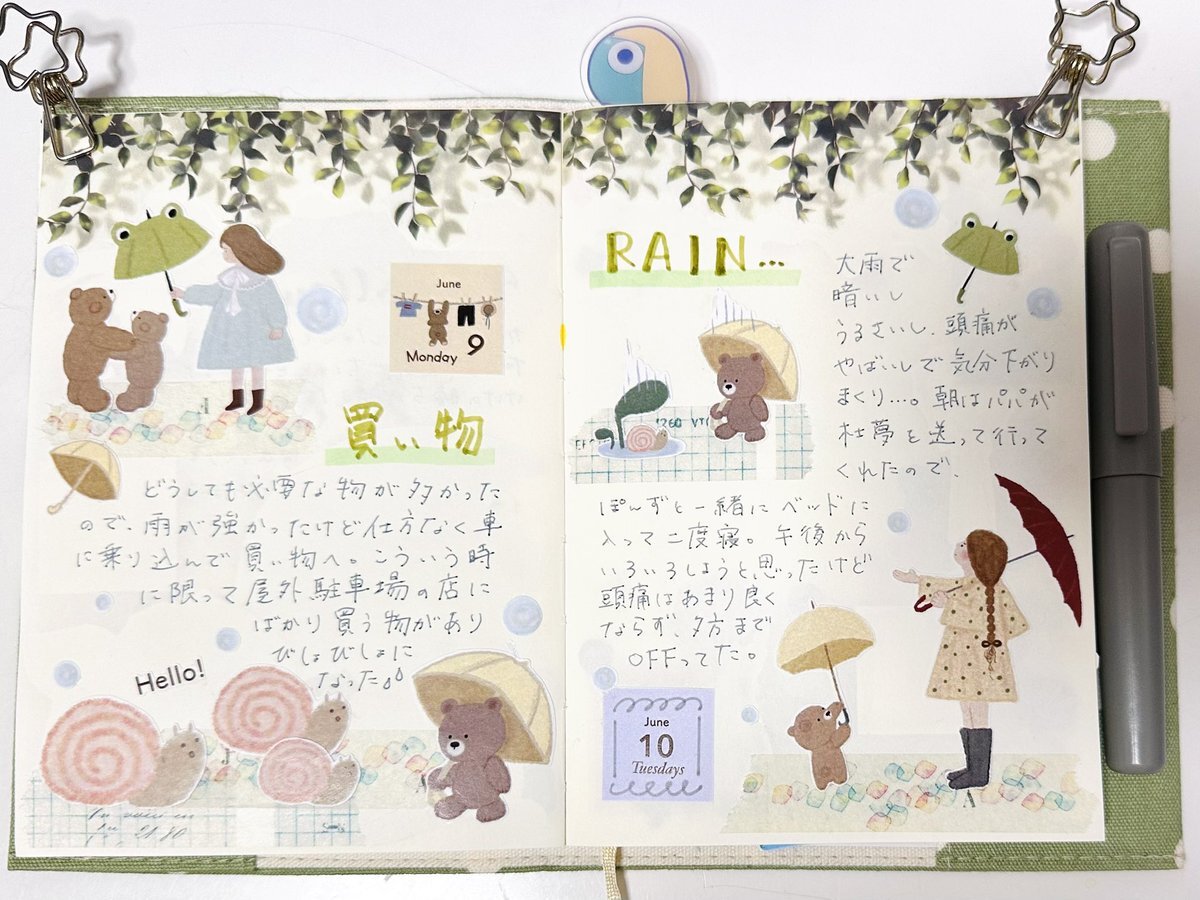 June
Monday 9
買い物
どうしても必要な物が多かった
ので、雨が強かったけど仕方なく車
に乗り込んで買い物へ。こういう時
に限って屋外駐車場の店に
ばかり買う物があり
びしょびしょに
なった
Hello!
RAIN...
大雨で
暗いし
うるさいし、頭痛が
やばいしで気分下がり
まくり…。朝はパパが
杜夢を送って行って
くれたので、
ぽんずと一緒にベッドに
入って二度寝。午後から
いろいろしようと思ったけど
頭痛はあまり良く
ならず、夕方まで
OFFってた。
June
10
Tuesdays